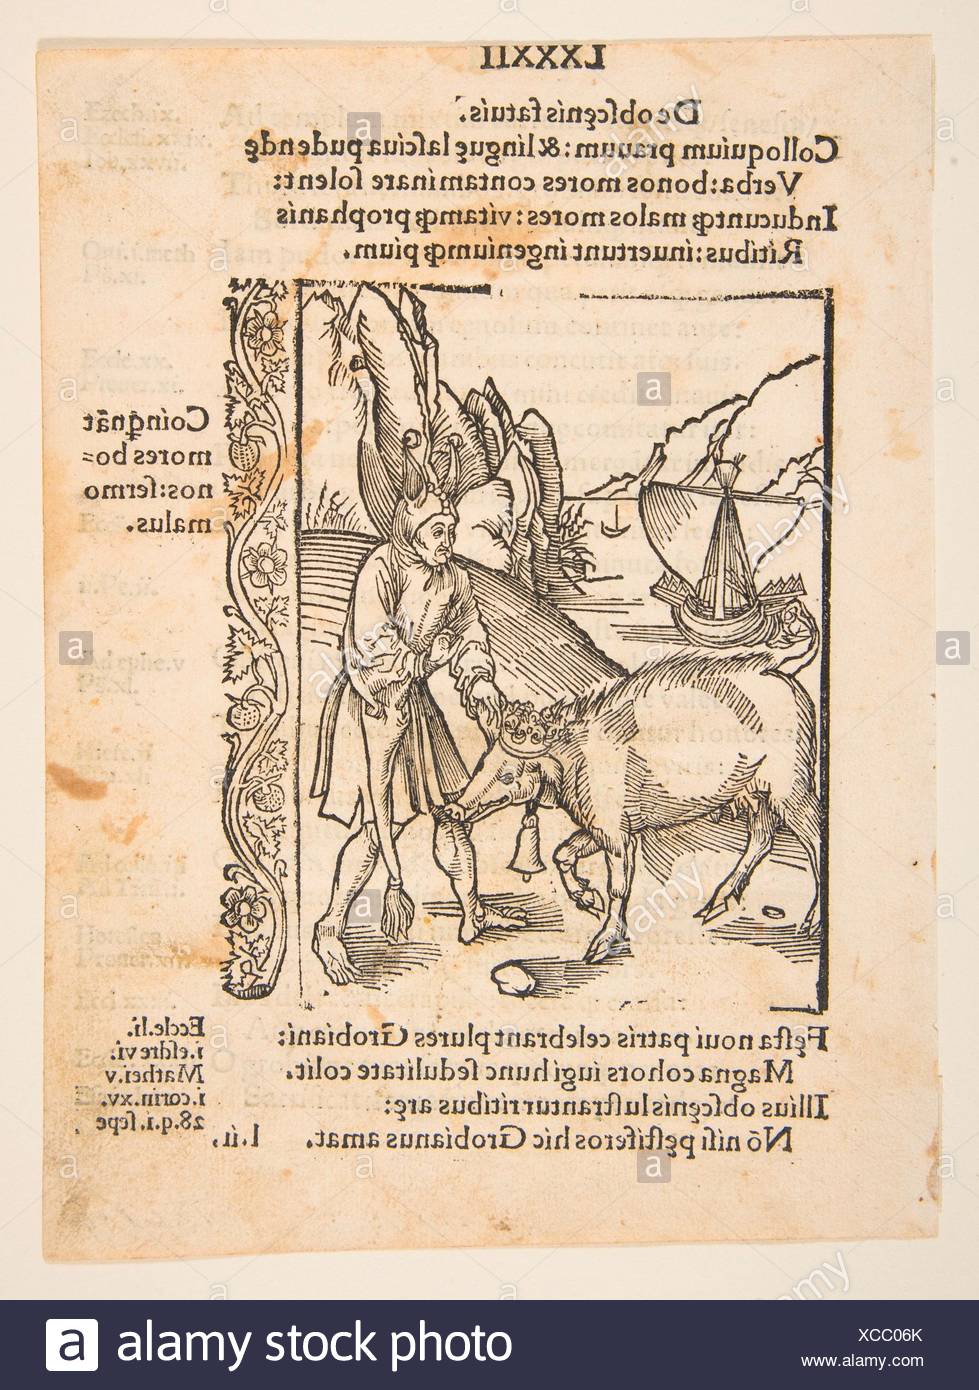 LXXXII
De obſcęnis fatuis.
Colloquium prauum: & linguę laſciua pudendę
Verba: bonos mores contaminare ſolent:
Inducuntq; malos mores: vitamq; prophanis
Ritibus: inuertunt ingeniumq; pium.
Coinq̃nāt
mores bo=
nos: ſermo
malus.
Fęſta noui patris celebrant plures Grobiani:
Magna cohors iugi hunc ſedulitate colit.
Illius obſcęnis luſtrantur ritibus arę:
Nō niſi pęſtiferos hic Grobianus amat.
Eccle.li.
i.eſdre vi
Mathei.v
i.corin.xv.
28.q.i.ſepe
l.ii.
a alamy stock photo
XCC06K
www.alamy.com